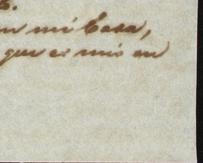 en mi Casa,
que es mio en